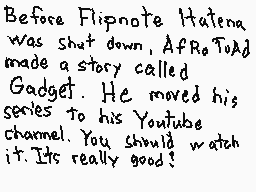 Before Flipnote Hatena
was shut down, AfRo ToAd
made a story called
Gadget. He moved his
series to his Youtube
channel. You should watch
it. Its really good!